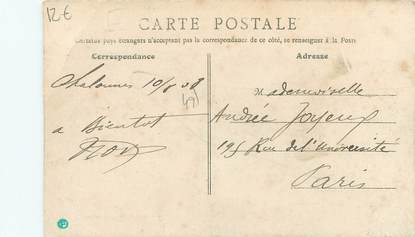 12 €
CARTE POSTALE
Certains pays étrangers n'acceptant pas la correspondance de ce côté, se renseigner à la Poste
Correspondance
Adresse
Chalonnes 10/8 08
(49)
a Bientot
Mademoiselle
Andrée Joyeux
195 Rue de l'Université
Paris